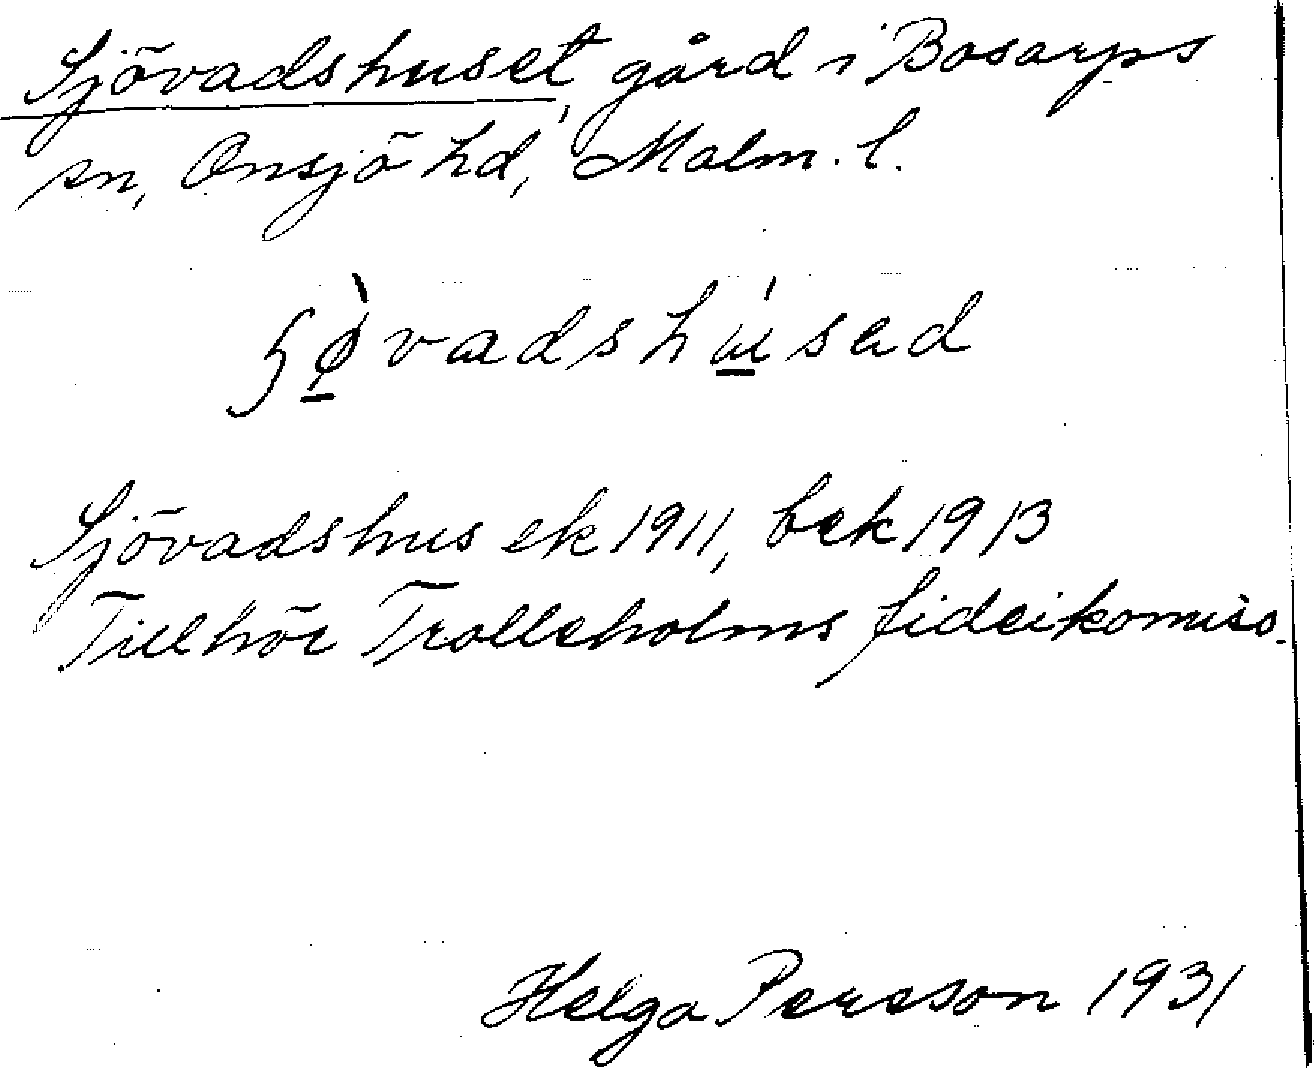 Sjövadshuset, gård i Bosarps
sn, Onsjö hd, Malm. l.
ʃø̀vadshúsad
Sjövadshus ek 1911, bek 1913
Tillhör Trolleholms fideikomiss.
Helga Persson 1931